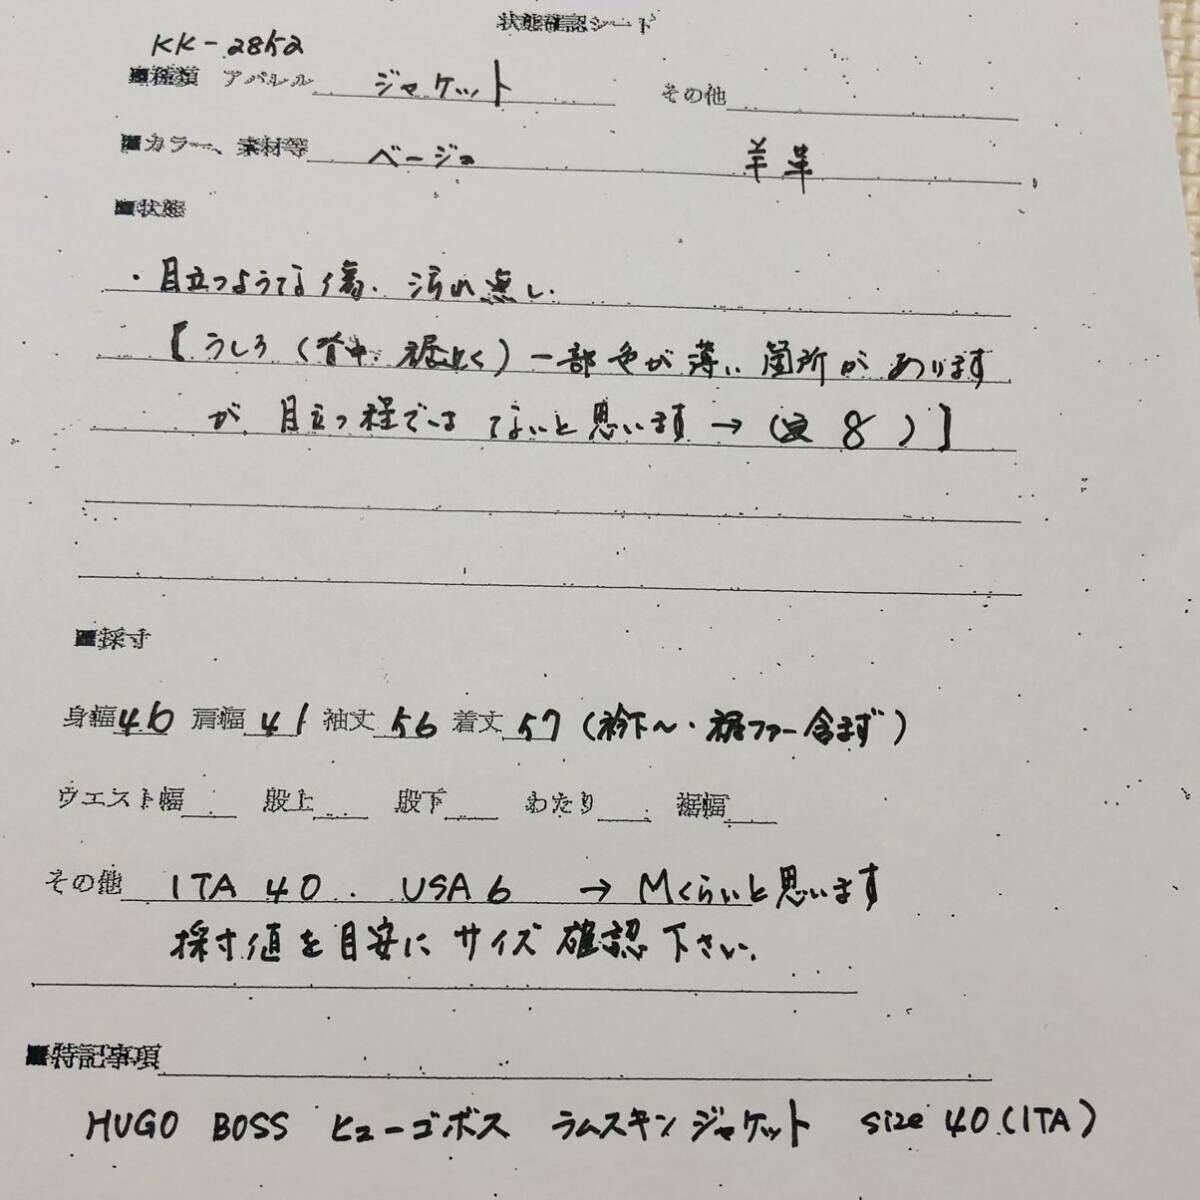 状態確認シート
KK-2852
■種類 アパレル ジャケット その他
■カラー、素材等 ベージュ 羊革
■状態
・目立つような傷、汚れ無し.
【うしろ(背中、裾近く)一部色が薄い箇所があります
が、目立つ程ではないと思います→( 8 )】
■採寸
身幅46 肩幅41 袖丈56 着丈57(衿下〜・裾ファー含まず)
ウエスト幅 股上 股下 わたり 裾幅
その他 ITA 40. USA 6 → Mくらいと思います
採寸値を目安にサイズ確認下さい.
■特記事項
HUGO BOSS ヒューゴボス ラムスキンジャケット size 40(ITA)